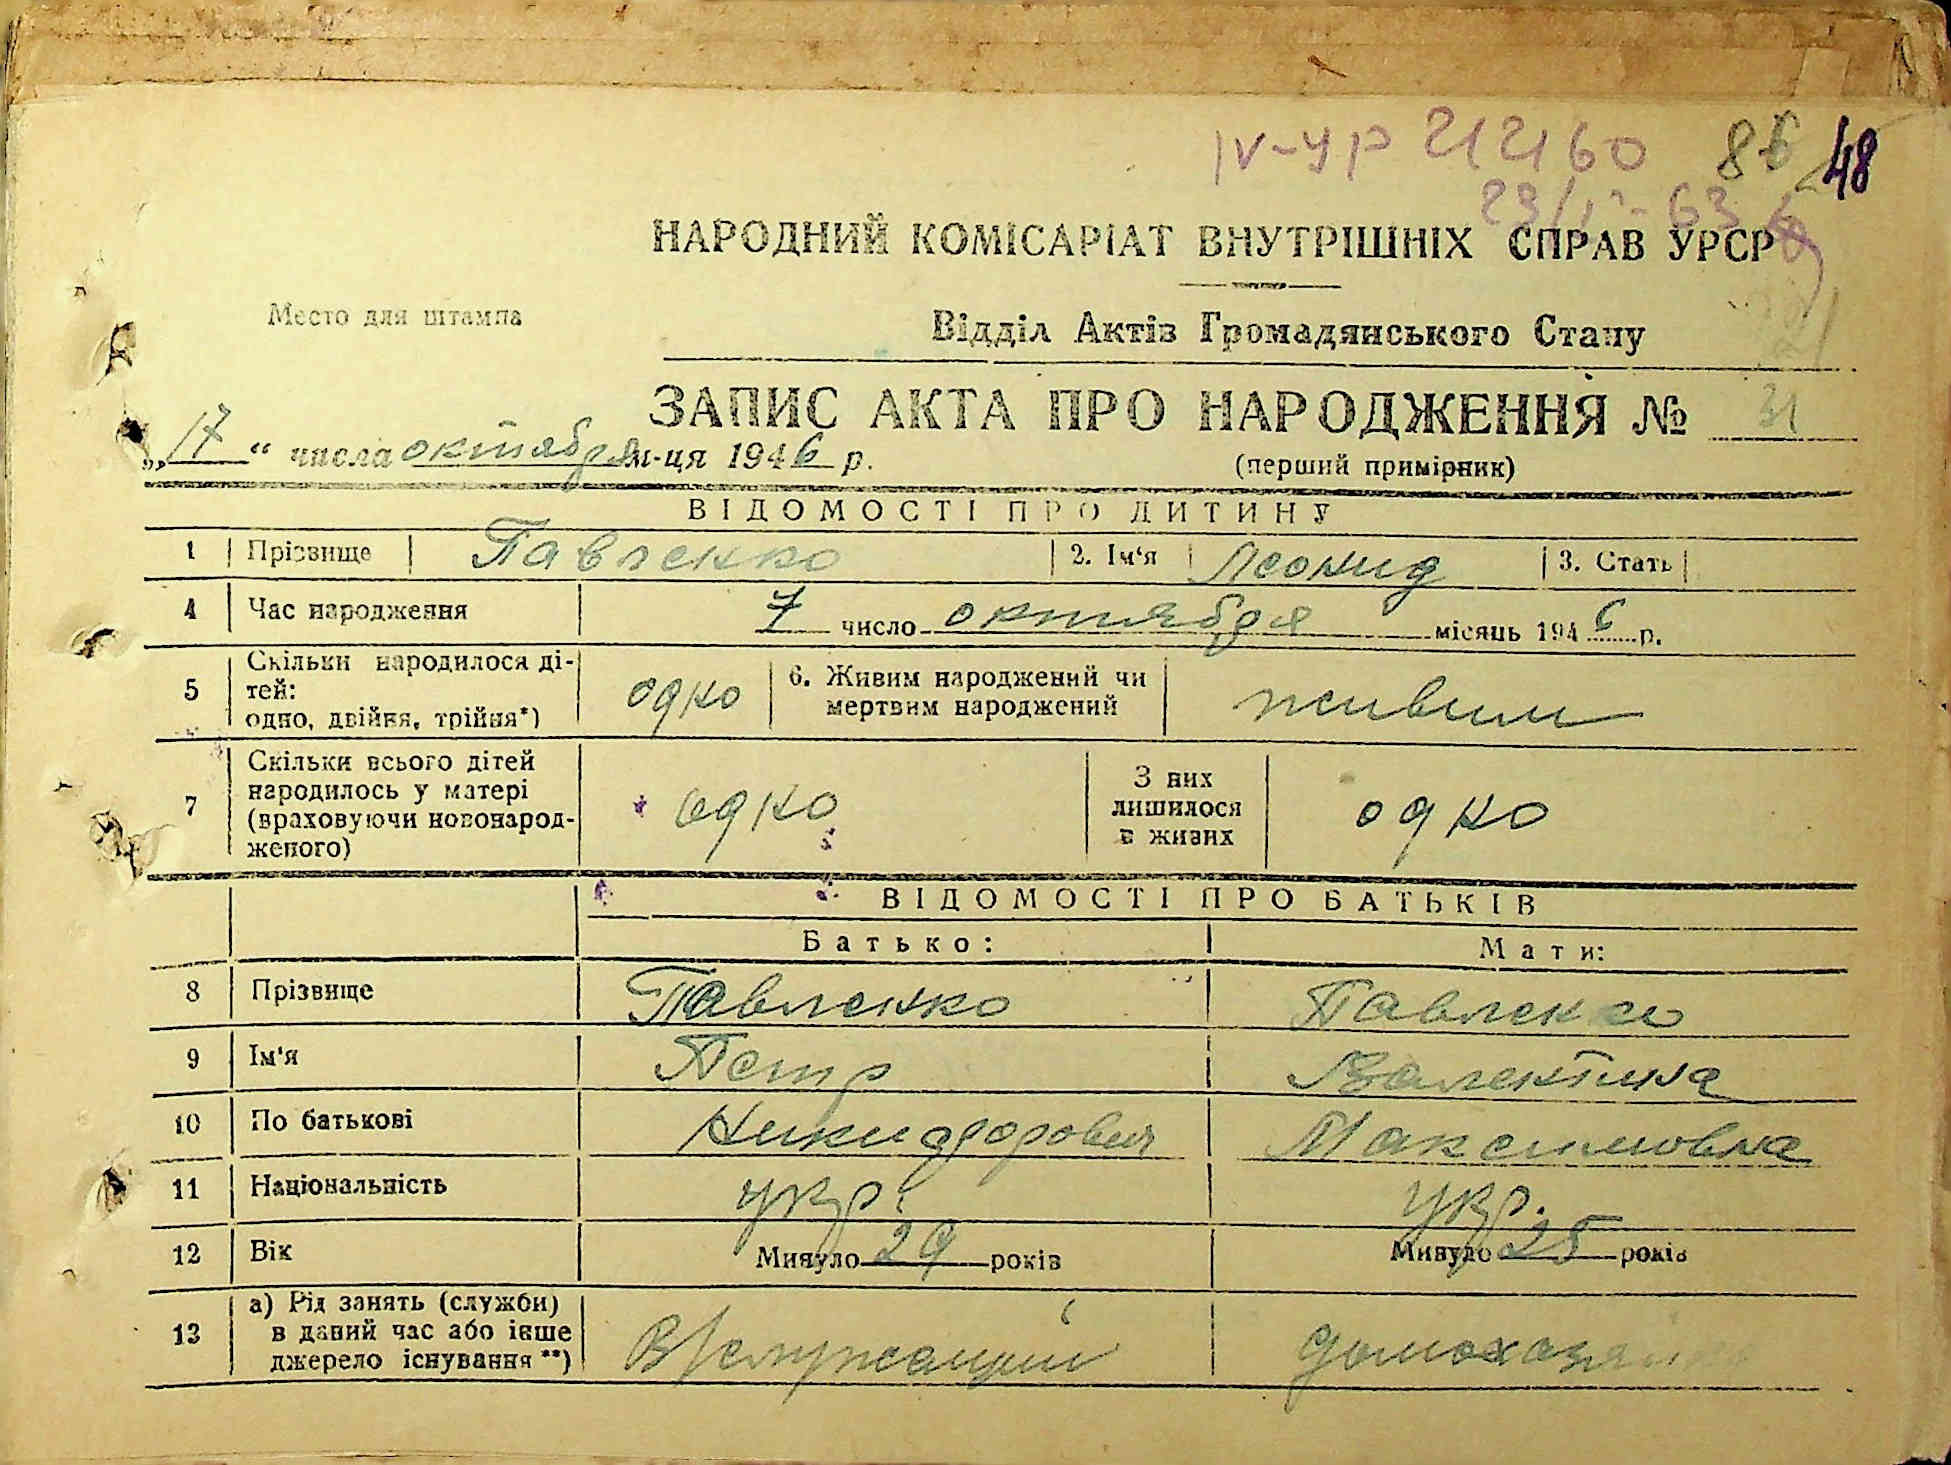 IV-УР 212160 86 48
НАРОДНИЙ КОМІСАРІАТ ВНУТРІШНІХ СПРАВ УРСР
Место для штампа
Відділ Актів Громадянського Стану
ЗАПИС АКТА ПРО НАРОДЖЕННЯ № 31
„17“ числа октября м-ця 1946 р.
(перший примірник)
ВІДОМОСТІ ПРО ДИТИНУ
1 Прізвище Павленко 2. Ім‘я Леонид 3. Стать
4 Час народження 7 число октября місяць 1946 р.
5 Скільки народилося ді-
тей:
одно, двійня, трійня*)
одно
6. Живим народжений чи
мертвим народжений
живим
7 Скільки всього дітей
народилось у матері
(враховуючи новонарод-
женого)
одно
З них
лишилося
в живих
одно
ВІДОМОСТІ ПРО БАТЬКІВ
Батько: Мати:
8 Прізвище Павленко Павленко
9 Ім‘я Петр Валентина
10 По батькові Никифорович Максимовна
11 Національність укр. укр.
12 Вік Минуло 29 років Минуло 25 років
13 а) Рід занять (служби)
в даний час або інше
джерело існування **)
В/служащий домохозяйка